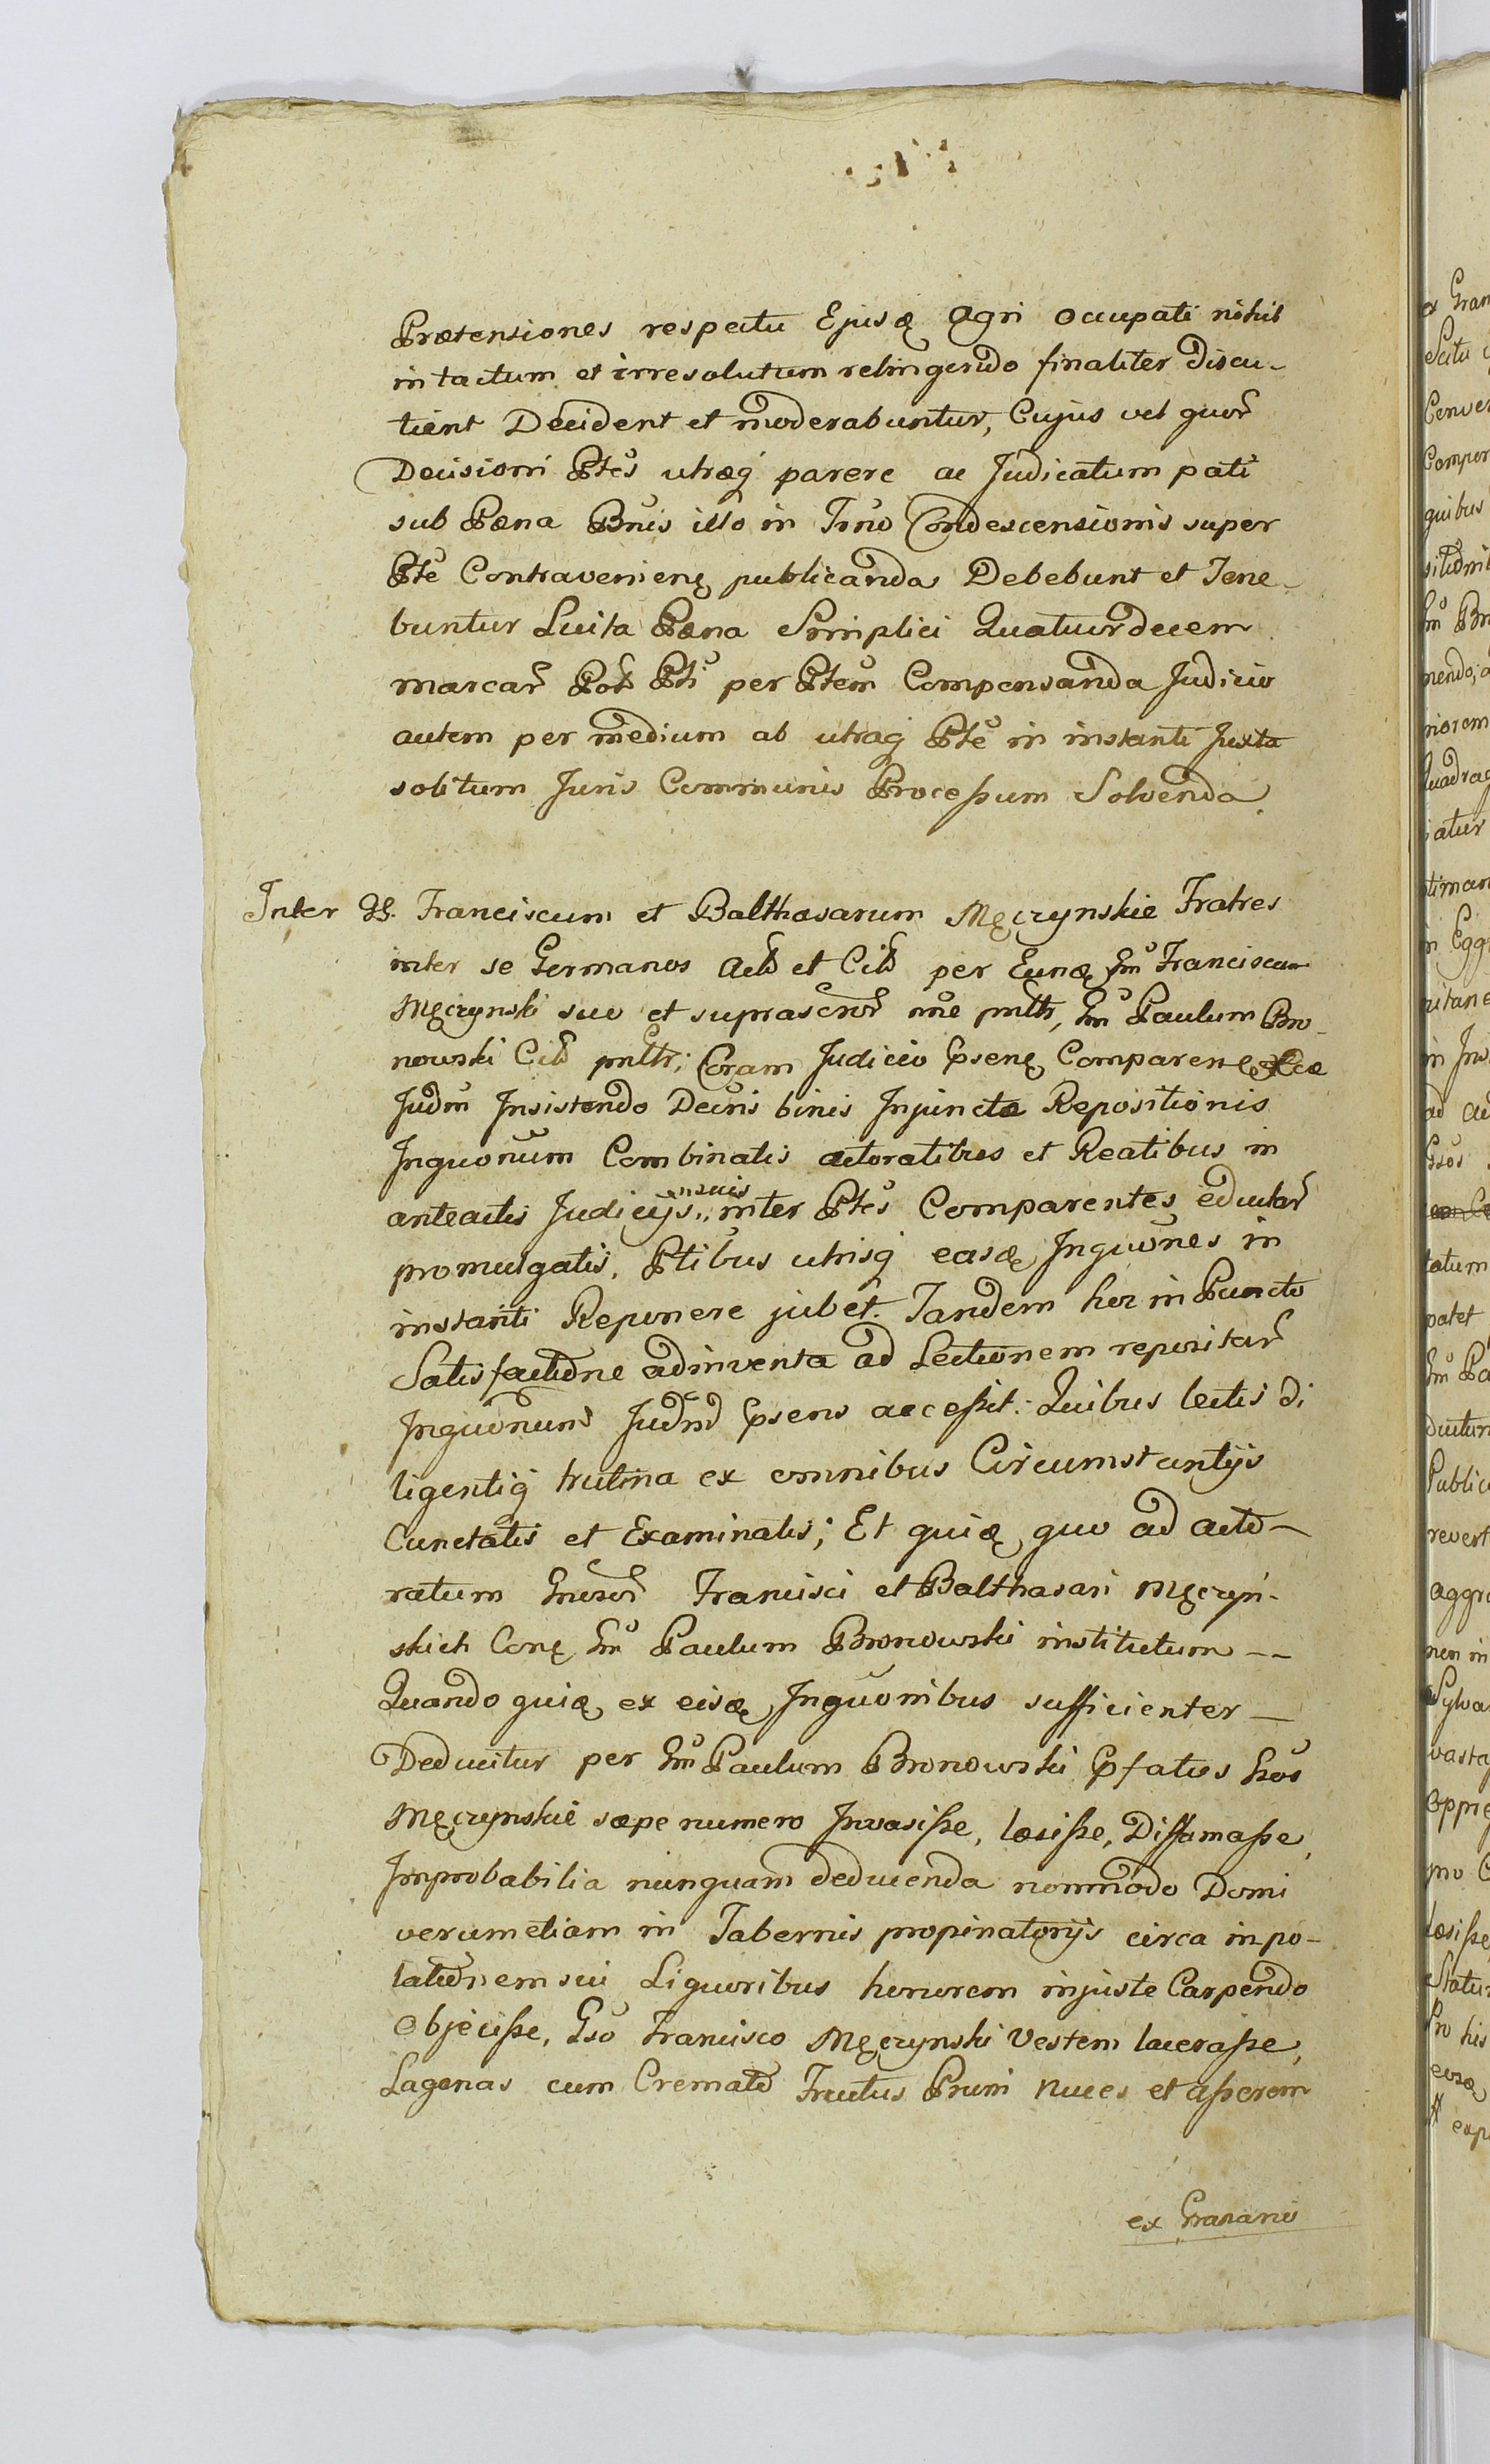 Prætensiones respectu Ejusq Agri occupati nihil
intactum et irresolutum relinqendo finaliter Discu-
tient Decident et moderabuntur, Cujus vel quor
Decisioni Ptes utræq parere ac Judicatum pati
sub Pæna Bnis isto in Trno Condescensionis super
Pte Contravenienę publicanda Debebunt et Tene-
buntur Luita Pæna Simplici Quatuordecem
marcar Pol Pti per Ptem Compensanda Judicio
autem per medium ab utraq Pte in instanti Juxta
solitum Juris Communis Processum Solvenda.
Inter GG. Franciscum et Balthasarum Męczynskie Fratres
inter se Germanos Act et Cit per Eunq Gm Franciscum
Męczynski suo et suprascror nne pnltr, Gm Paulum Bro-
nowski Cit pnltr; Coram Judicio Psenę Comparenę
Judm Insistendo Decris binis Injunctæ Repositionis
Inquonum Combinatis actoratibus et Reatibus in
anteactis Judicijs suis inter Ptes Comparentes eductar
promulgatis, Ptibus utrisq easq Inquones in
instanti Reponere jubet. Tandem huic in Puncto
Satisfactione adinventa ad Lectionem repositar
Inquonum Judm Psens accessit: Quibus lectis di
ligentiq trutina ex omnibus Circumstantijs
Cunctatis et Examinatis; Et quiq quo ad acto-
ratum Gnesor Francisci et Balthasari Męczyn-
skich Conę Gm Paulum Bronowski institutum --
Quando quiq ex eisq Inquonibus sufficienter -
Deducitur per Gm Paulum Bronowski Pfatos Gsos
Męczynskie sæpe numero Invasisse, læsisse, Diffamasse,
Improbabilia nunquam deducenda nonmodo Domi
verumetiam in Tabernis propinatorijs circa inpo-
tationem sui Liquoribus honorem injuste Carpendo
Objecisse, Gso Francisco Męczynski Vestem lacerasse,
Lagenas cum Cremato Fructus Pruni Nuces et asserem
ex Granario